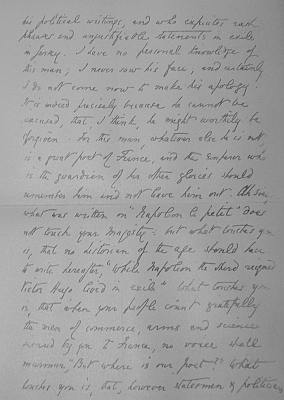 his political writings, and who expiates rash
phrases and unjustifiable statements in exile
in Jersey. I have no personal knowledge of
this man; I never saw his face; and certainly
I do not come now to make his apology.
It is indeed precisely because he cannot be
excused, that I think he might worthily be
forgiven. For this man, whatever else he is not
is a great poet of France, and the Emperor who
is the guardian of her other glories should
remember him and not leave him out. Ah sire,
what was written on "Napoleon le petit" does
not touch your Majesty; but what touches you
is, that no historian of the age should have
to write hereafter, "While Napoleon the Third reigned
Victor Hugo lived in exile." What touches you
is, that when your people count gratefully
the men of commerce, arms and science
secured by you to France, no voice shall
murmur, "But where is our poet?" What
touches you is, that, however statesmen & politicians